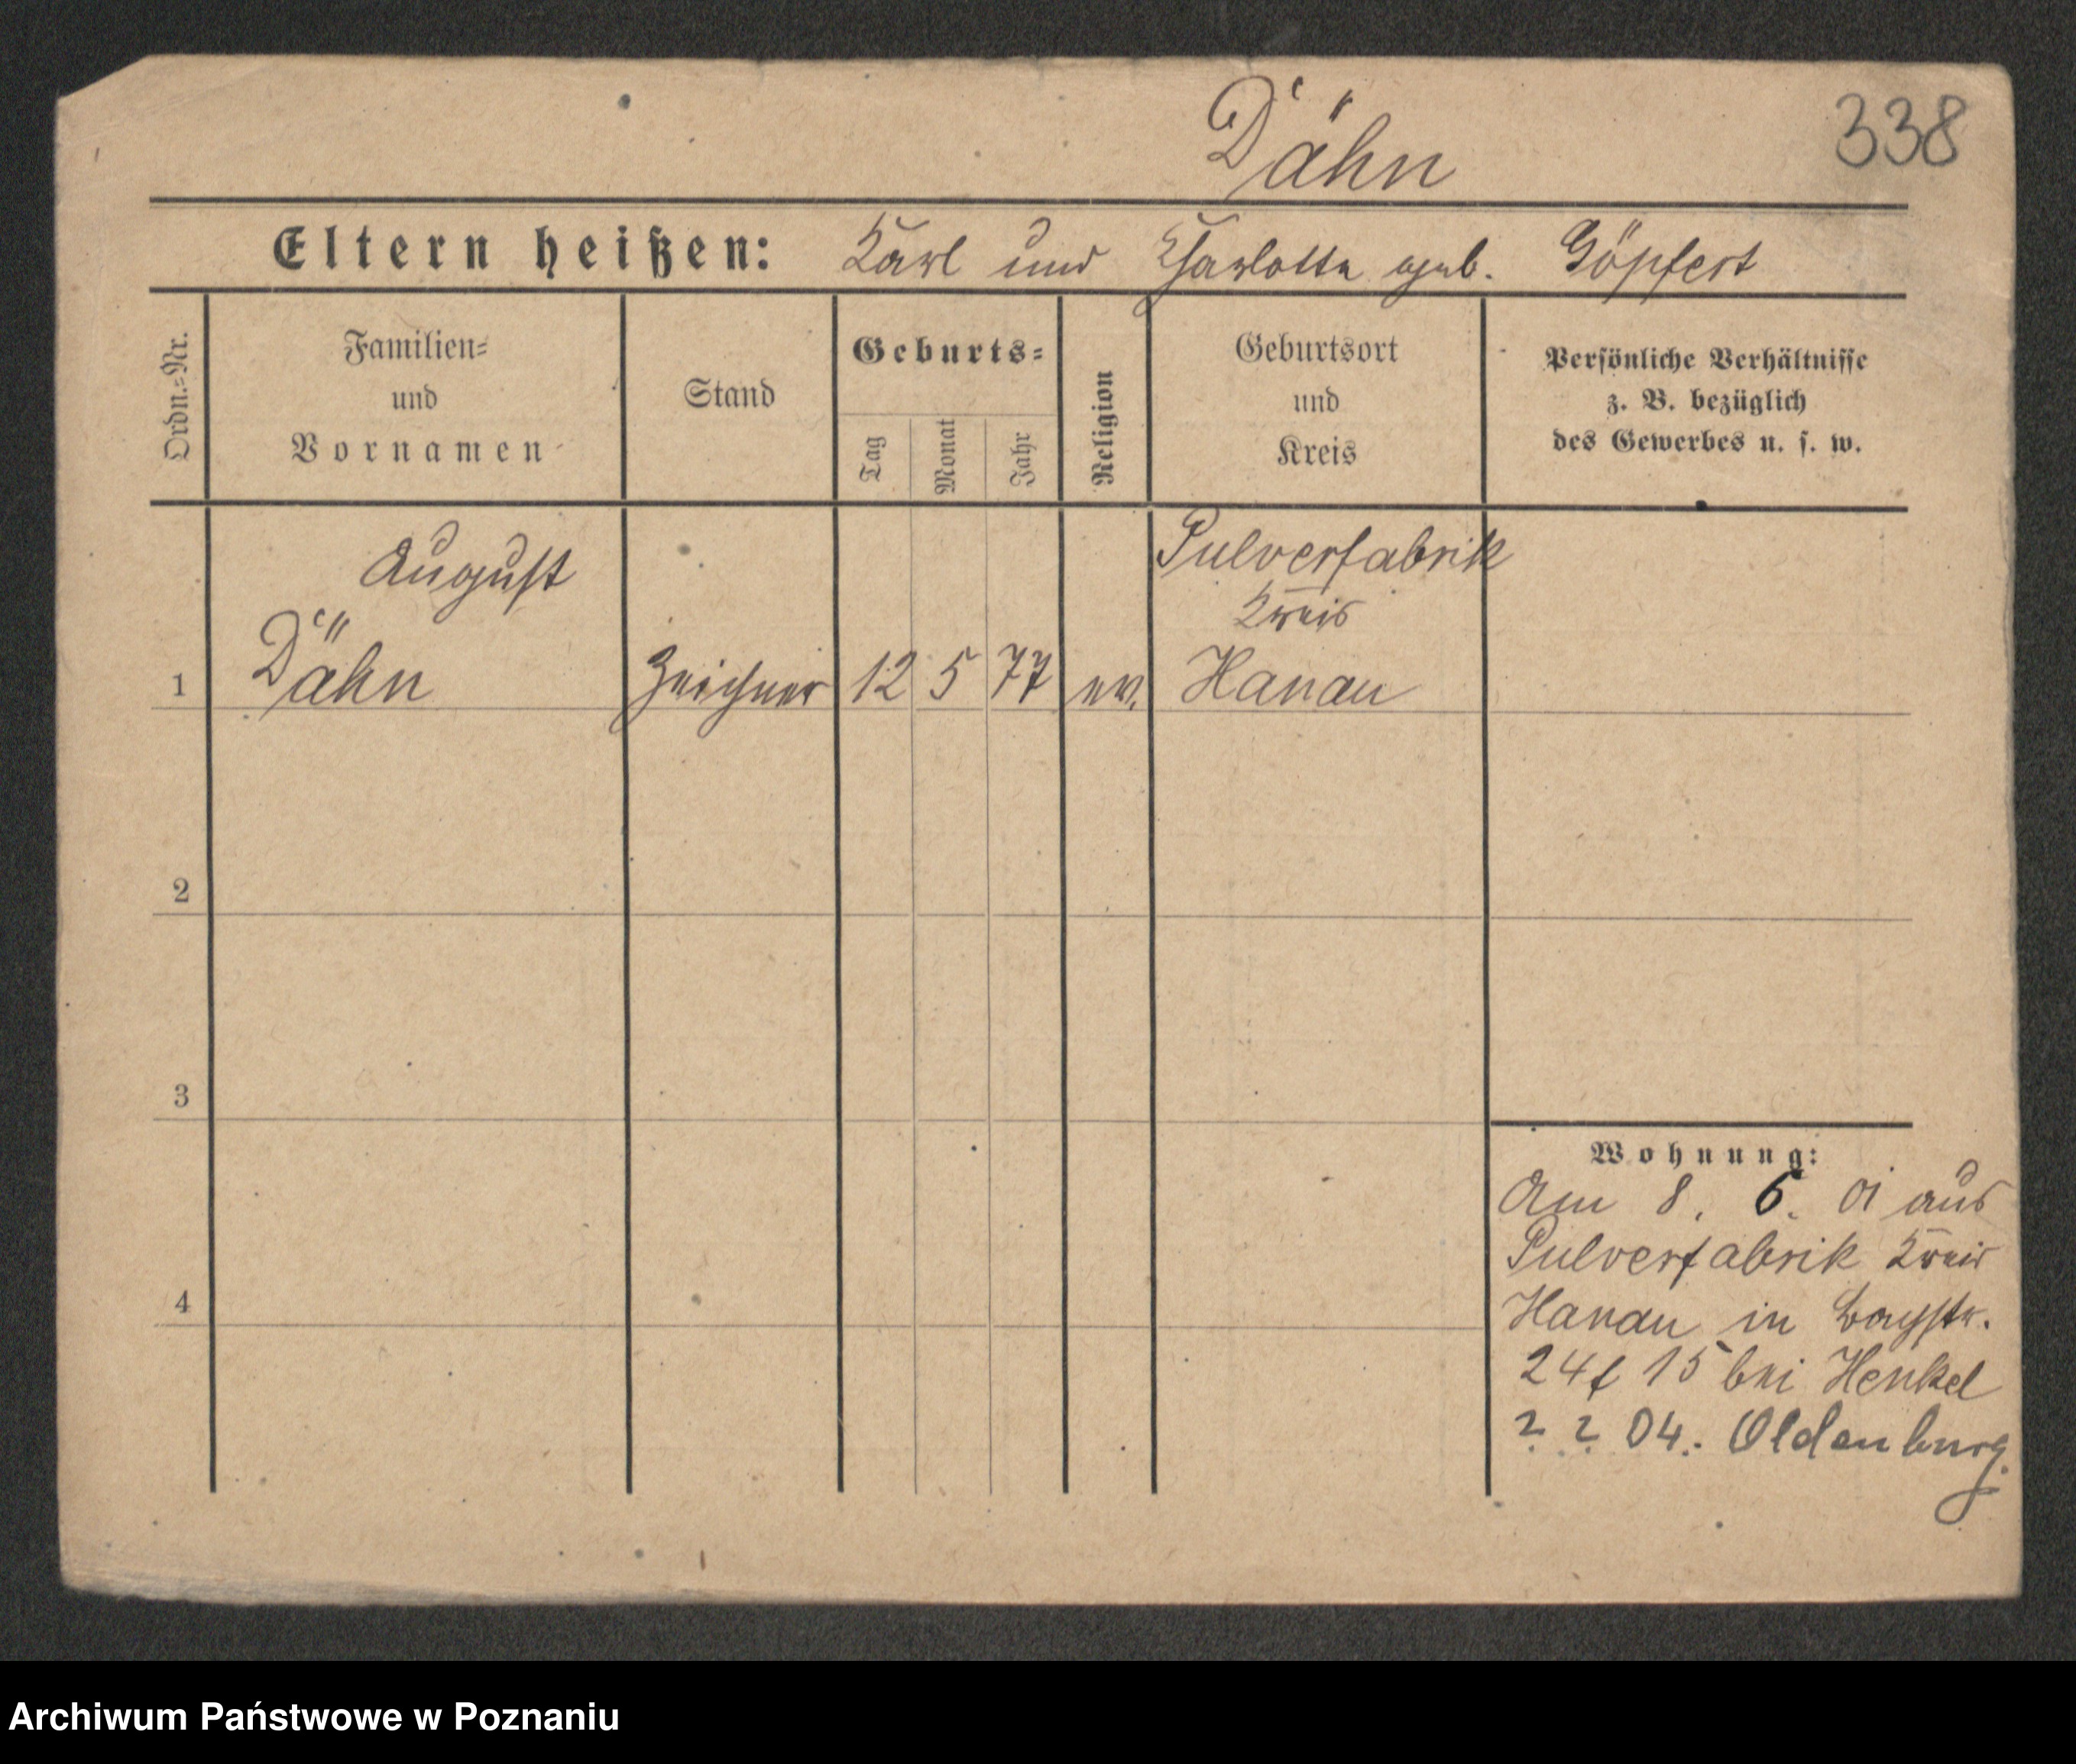 Dähn
338
Eltern heißen: Karl und Charlotte geb. Göpfert
Ordn.=Nr.
Familien=
und
Vornamen
Stand
Geburts=
Tag
Monat
Jahr
Religion
Geburtsort
und
Kreis
Persönliche Verhältnisse
z. B. bezüglich
des Gewerbes u. s. w.
August
Pulverfabrik
Kreis
1 Dähn Zeichner 12 5 77 ev. Hanau
2
3
4
Wohnung:
Am 8. 6. 01 aus
Pulverfabrik Kreis
Hanau in
24 15 bei Henkel
? ? 04. Oldenburg.
Archiwum Państwowe w Poznaniu